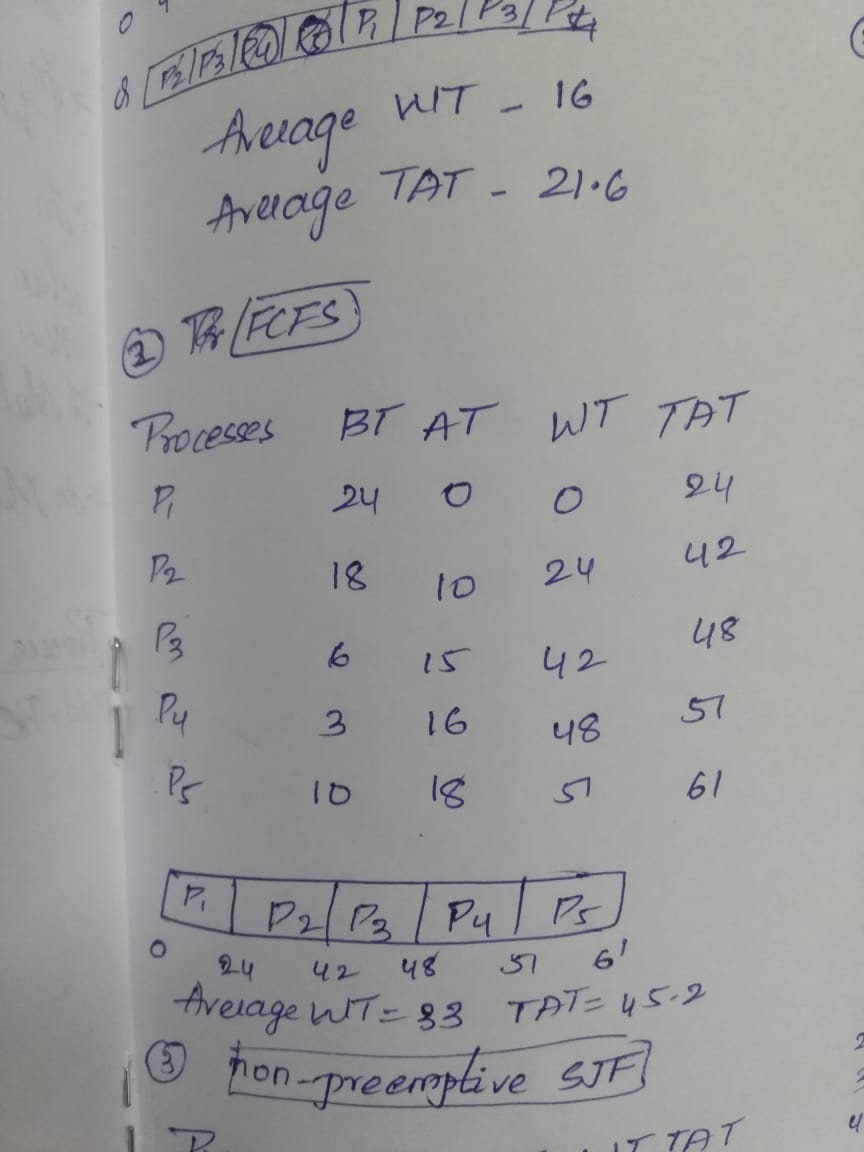 0 4
P1 | P2 | P3 |
P2 | P3 | P4 |
Average WT - 16
Average TAT - 21.6
② FCFS
Processes BT AT WT TAT
P1 24 0 0 24
P2 18 10 24 42
P3 6 15 42 48
P4 3 16 48 51
P5 10 18 51 61
P1 | P2 | P3 | P4 | P5
0 24 42 48 51 61
Average WT = 33 TAT = 45.2
③ non-preemptive SJF
TAT